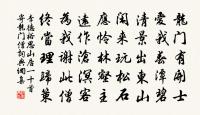 龍門有開士
愛我春潭碧
清景出東山
閑來玩松石
應憐林壑主
遠作滄溟客
為我謝此僧
終當理歸策
李德裕思山居一十首
寄龍门僧詞典網集